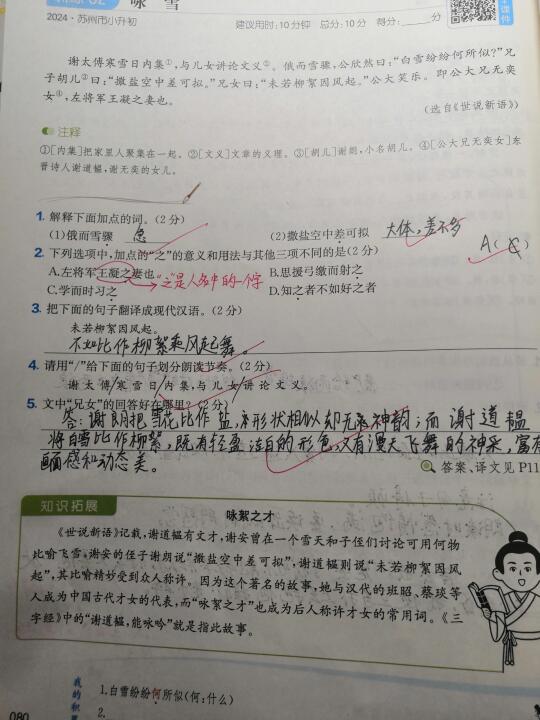 咏 雪
2024·苏州市小升初
建议用时:10分钟 总分:10分 得分:____分
谢太傅寒雪日内集①,与儿女讲论文义②。俄而雪骤,公欣然曰:“白雪纷纷何所似?”兄
子胡儿③曰:“撒盐空中差可拟。”兄女曰:“未若柳絮因风起。”公大笑乐。即公大兄无奕
女④,左将军王凝之妻也。
(选自《世说新语》)
注释
①[内集]把家里人聚集在一起。②[文义]文章的义理。③[胡儿]谢朗,小名胡儿。④[公大兄无奕女]东
晋诗人谢道韫,谢无奕的女儿。
1. 解释下面加点的词。(2分)
(1)俄而雪骤 急 (2)撒盐空中差可拟 大体,差不多
2. 下列选项中,加点的“之”的意义和用法与其他三项不同的是(2分) A(
A.左将军王凝之妻也 “之”是人名中的一个字 B.思援弓缴而射之
C.学而时习之 D.知之者不如好之者
3. 把下面的句子翻译成现代汉语。(2分)
未若柳絮因风起。
不如比作柳絮乘风起舞。
4. 请用“/”给下面的句子划分朗读节奏。(2分)
谢太傅/寒雪日/内集,与儿女/讲论文义。
5. 文中“兄女”的回答好在哪里?(2分)
答:谢朗把雪花比作盐,形状相似却无神韵;而谢道韫
将白雪比作柳絮,既有轻盈洁白的形色,又有漫天飞舞的神采,富有
美感和动态美。
答案、译文见P11
知识拓展
咏絮之才
《世说新语》记载,谢道韫有文才,谢安曾在一个雪天和子侄们讨论可用何物
比喻飞雪。谢安的侄子谢朗说“撒盐空中差可拟”,谢道韫则说“未若柳絮因风
起”,其比喻精妙受到众人称许。因为这个著名的故事,她与汉代的班昭、蔡琰等
人成为中国古代才女的代表,而“咏絮之才”也成为后人称许才女的常用词。《三
字经》中的“谢道韫,能咏吟”就是指此故事。
我的积累
1.白雪纷纷何所似(何:什么)
2.
080